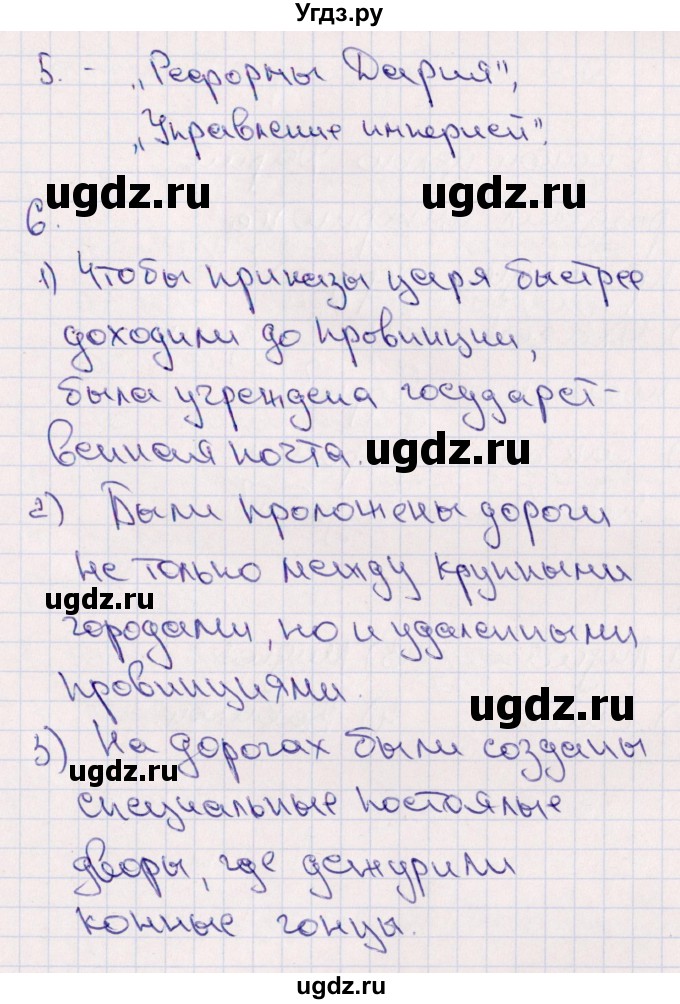 Угдз.ру
5. - „Реформы Дария",
„Управление империей".
ugdz.ru
6.
1) Чтобы приказы царя быстрее
доходили до провинции,
была учреждена государст-
венная почта.
ugdz.ru
2) Были проложены дороги
не только между крупными
ugdz.ru
городами, но и удаленными
провинциями.
ugdz.ru
3) На дорогах были созданы
ugdz.ru
специальные постоялые
дворы, где дежурили
конные гонцы.
ugdz.ru